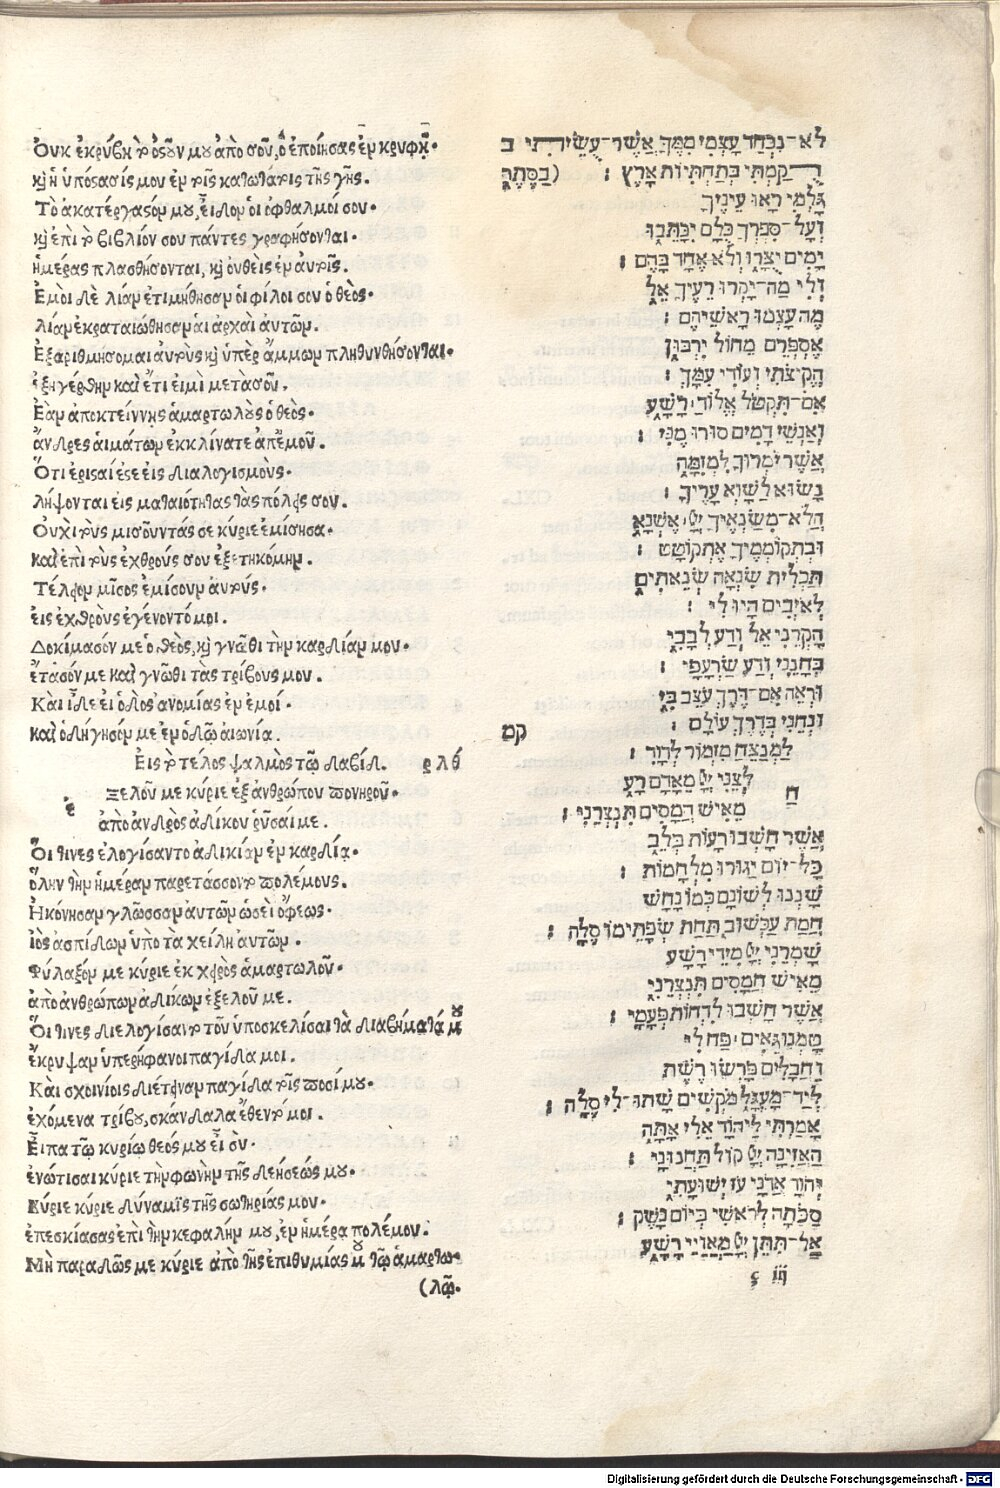 Ὀυκ ἐκρύβη τὸ ὀστοῦν μου ἀπὸ σοῦ, ὃ ἐποίησας ἐν κρυφῇ.
καὶ ἡ ὑπόστασίς μου ἐν τοῖς κατωτάτοις τῆς γῆς.
Τὸ ἀκατέργαστόν μου, εἶδον ὁι ὀφθαλμοί σου.
καὶ ἐπὶ τὸ βιβλίον σου πάντες γραφήσονται.
ἡμέρας πλασθήσονται, καὶ ὀυθεὶς ἐν ἀυτοῖς.
Ἐμοὶ δὲ λίαν ἐτιμήθησαν ὁι φίλοι σου ὁ θεός.
λίαν ἐκραταιώθησαν αι ἀρχαὶ ἀυτῶν.
Ἐξαριθμήσομαι ἀυτοὺς καὶ ὑπὲρ ἄμμον πληθυνθήσονται.
ἐξηγέρθην καὶ ἔτι ἐιμὶ μετὰ σοῦ.
Ἐὰν ἀποκτείννῃς ἁμαρτωλοὺς ὁ θεός.
ἄνδρες ἁιμάτων ἐκκλίνατε ἀπ' ἐμοῦ.
Ὅτι ἐρισταί ἐστε ἐις διαλογισμούς.
λήψονται ἐις ματαιότητα τὰς πόλεις σου.
Ὀυχὶ τοὺς μισοῦντάς σε κύριε ἐμίσησα.
καὶ ἐπὶ τοὺς ἐχθρούς σου ἐξετηκόμην.
Τέλειον μῖσος ἐμίσουν ἀυτούς.
ἐις ἐχθροὺς ἐγένοντό μοι.
Δοκίμασόν με ὁ θεὸς, καὶ γνῶθι τὴν καρδίαν μου.
ἔτασόν με καὶ γνῶθι τὰς τρίβους μου.
Καὶ ἴδε ἐι ὁδὸς ἀνομίας ἐν ἐμοί.
καὶ ὁδήγησόν με ἐν ὁδῷ αιωνίᾳ.
Ἐις τὸ τέλος ψαλμὸς τῷ δαβίδ. ρλθ
Ἐξελοῦ με κύριε ἐξ ἀνθρώπου πονηροῦ.
ἀπὸ ἀνδρὸς ἀδίκου ῥῦσαί με.
Ὅιτινες ἐλογίσαντο ἀδικίαν ἐν καρδίᾳ.
ὅλην τὴν ἡμέραν παρετάσσοντο πολέμους.
Ἠκόνησαν γλῶσσαν ἀυτῶν ὡσεὶ ὄφεως.
ἰὸς ἀσπίδων ὑπὸ τὰ χείλη ἀυτῶν.
Φύλαξόν με κύριε ἐκ χειρὸς ἁμαρτωλοῦ.
ἀπὸ ἀνθρώπων ἀδίκων ἐξελοῦ με.
Ὅιτινες διελογίσαντο τοῦ ὑποσκελίσαι τὰ διαβήματά μου
ἔκρυψαν ὑπερήφανοι παγίδα μοι.
Καὶ σχοινίοις διέτειναν παγίδα τοῖς ποσί μου.
ἐχόμενα τρίβου, σκάνδαλα ἔθεντό μοι.
Ἐῖπα τῷ κυρίῳ θεός μου ἐῖ σύ.
ἐνώτισαι κύριε τὴν φωνὴν τῆς δεήσεώς μου.
Κύριε κύριε δύναμις τῆς σωτηρίας μου.
ἐπεσκίασας ἐπὶ τὴν κεφαλήν μου, ἐν ἡμέρᾳ πολέμου.
Μὴ παραδῷς με κύριε ἀπὸ τῆς ἐπιθυμίας μου τῷ ἁμαρτω-
(λῷ.
לֹא־נִכְחַד עָצְמִי מִמֶּךָּ אֲשֶׁר־עֻשֵּׂיתִי ב
רֻקַּמְתִּי בְּתַחְתִּיּוֹת אָרֶץ : (בַסֵּתֶר
גָּלְמִי רָאוּ עֵינֶיךָ
וְעַל־סִפְרְךָ כֻּלָּם יִכָּתֵבוּ
יָמִים יֻצָּרוּ וְלֹא אֶחָד בָּהֶם :
וְלִי מַה־יָּקְרוּ רֵעֶיךָ אֵל
מֶה עָצְמוּ רָאשֵׁיהֶם :
אֶסְפְּרֵם מֵחוֹל יִרְבּוּן
הֱקִיצֹתִי וְעוֹדִי עִמָּךְ :
אִם־תִּקְטֹל אֱלוֹהַּ רָשָׁע
וְאַנְשֵׁי דָמִים סוּרוּ מֶנִּי :
אֲשֶׁר יֹמְרוּךָ לִמְזִמָּה
נָשׂוּא לַשָּׁוְא עָרֶיךָ :
הֲלֹא־מְשַׂנְאֶיךָ יְיָ אֶשְׂנָא
וּבִתְקוֹמְמֶיךָ אֶתְקוֹטָט :
תַּכְלִית שִׂנְאָה שְׂנֵאתִים
לְאֹיְבִים הָיוּ לִי :
חָקְרֵנִי אֵל וְדַע לְבָבִי
בְּחָנֵנִי וְדַע שַׂרְעַפָּי :
וּרְאֵה אִם־דֶּרֶךְ עֹצֶב בִּי
וּנְחֵנִי בְּדֶרֶךְ עוֹלָם : קמ
לַמְנַצֵּחַ מִזְמוֹר לְדָוִד :
חַלְּצֵנִי יְיָ מֵאָדָם רָע
מֵאִישׁ חֲמָסִים תִּנְצְרֵנִי :
אֲשֶׁר חָשְׁבוּ רָעוֹת בְּלֵב
כָּל־יוֹם יָגוּרוּ מִלְחָמוֹת :
שָׁנֲנוּ לְשׁוֹנָם כְּמוֹ נָחָשׁ
חֲמַת עַכְשׁוּב תַּחַת שְׂפָתֵימוֹ סֶלָה :
שָׁמְרֵנִי יְיָ מִידֵי רָשָׁע
מֵאִישׁ חֲמָסִים תִּנְצְרֵנִי
אֲשֶׁר חָשְׁבוּ לִדְחוֹת פְּעָמָי :
טָמְנוּ גֵאִים־פַּח לִי
וַחֲבָלִים פָּרְשׂוּ רֶשֶׁת
לְיַד־מַעְגָּל מֹקְשִׁים שָׁתוּ־לִי סֶלָה :
אָמַרְתִּי לַיהוָֹה אֵלִי אָתָּה
הַאֲזִינָה יְיָ קוֹל תַּחֲנוּנָי :
יְהוָֹה אֲדֹנָי עֹז יְשׁוּעָתִי
סַכֹּתָה לְרֹאשִׁי בְּיוֹם נָשֶׁק :
אַל־תִּתֵּן יְיָ מַאֲוַיֵּי רָשָׁע
ς iij
Digitalisierung gefördert durch die Deutsche Forschungsgemeinschaft - DFG